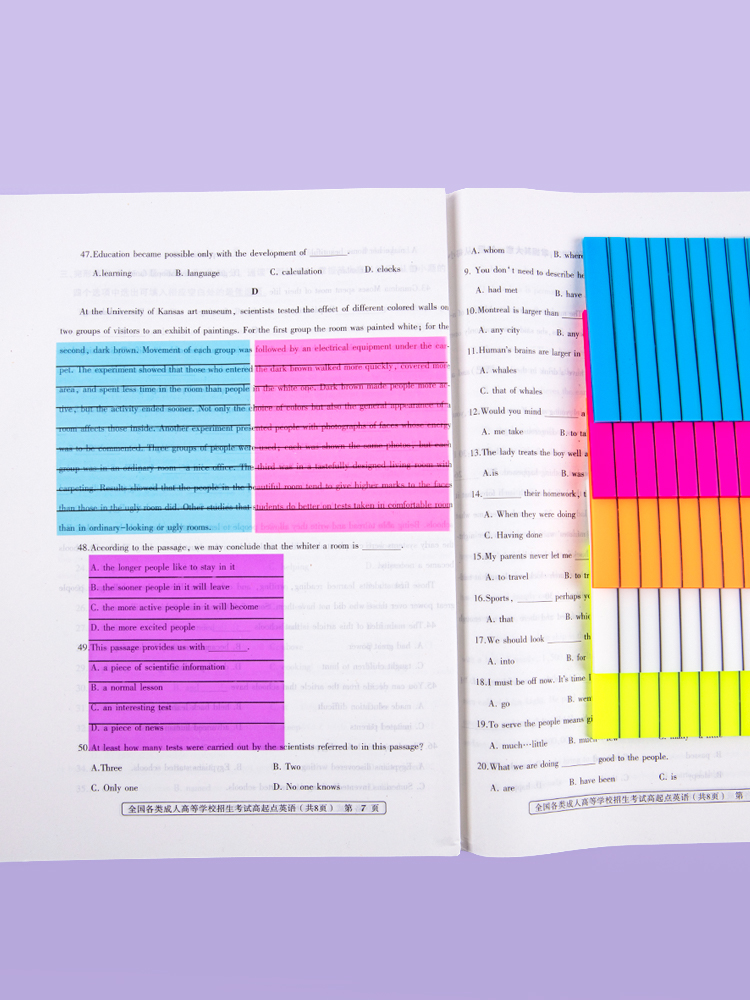 47.Education became possible only with the development of ________.
A.learning B. language C. calculation D. clocks
D
At the University of Kansas art museum, scientists tested the effect of different colored walls on
two groups of visitors to an exhibit of paintings. For the first group the room was painted white; for the
second, dark brown. Movement of each group was followed by an electrical equipment under the car-
pet. The experiment showed that those who entered the dark brown walked more quickly, covered more
area, and spent less time in the room than people in the white one. Dark brown made people more ac-
tive, but the activity ended sooner. Not only the choice of colors but also the general appearance of a
room affects those inside. Another experiment presented people with photographs of faces whose energy
was to be commented. Three groups of people were used; each was shown the same photos, but each
group was in an ordinary room—a nice office. The third was in a tastefully designed living room with
carpeting. Results showed that the people in the beautiful room tend to give higher marks to the faces
than those in the ugly room did. Other studies that students do better on tests taken in comfortable room
than in ordinary-looking or ugly rooms.
48.According to the passage, we may conclude that the whiter a room is ________.
A. the longer people like to stay in it
B. the sooner people in it will leave
C. the more active people in it will become
D. the more excited people
49.This passage provides us with ________.
A. a piece of scientific information
B. a normal lesson
C. an interesting test
D. a piece of news
50.At least how many tests were carried out by the scientists referred to in this passage?
A.Three B. Two
C. Only one D. No one knows
全国各类成人高等学校招生考试高起点英语(共8页) 第 7 页
A. whom B. where
9. You don't need to describe he
A. had met B. have
10.Montreal is larger than
A. any city B. any
11.Human's brains are larger in
A. whales
C. that of whales
12.Would you mind ________ a
A. me take B. to ta
13.The lady treats the boy well a
A.is B. was
14.________ their homework, t
A. When they were doing
C. Having done
15.My parents never let me
A. to travel B. to tr
16.Sports, ________ perhaps y
A. that B. whic
17.We should look ________ th
A. into B. for
18.I must be off now. It's time I
A. go B. wen
19.To serve the people means gi
A. much…little B. much
20.What we are doing ________ good to the people.
A. are B. have been C. is
全国各类成人高等学校招生考试高起点英语(共8页) 第